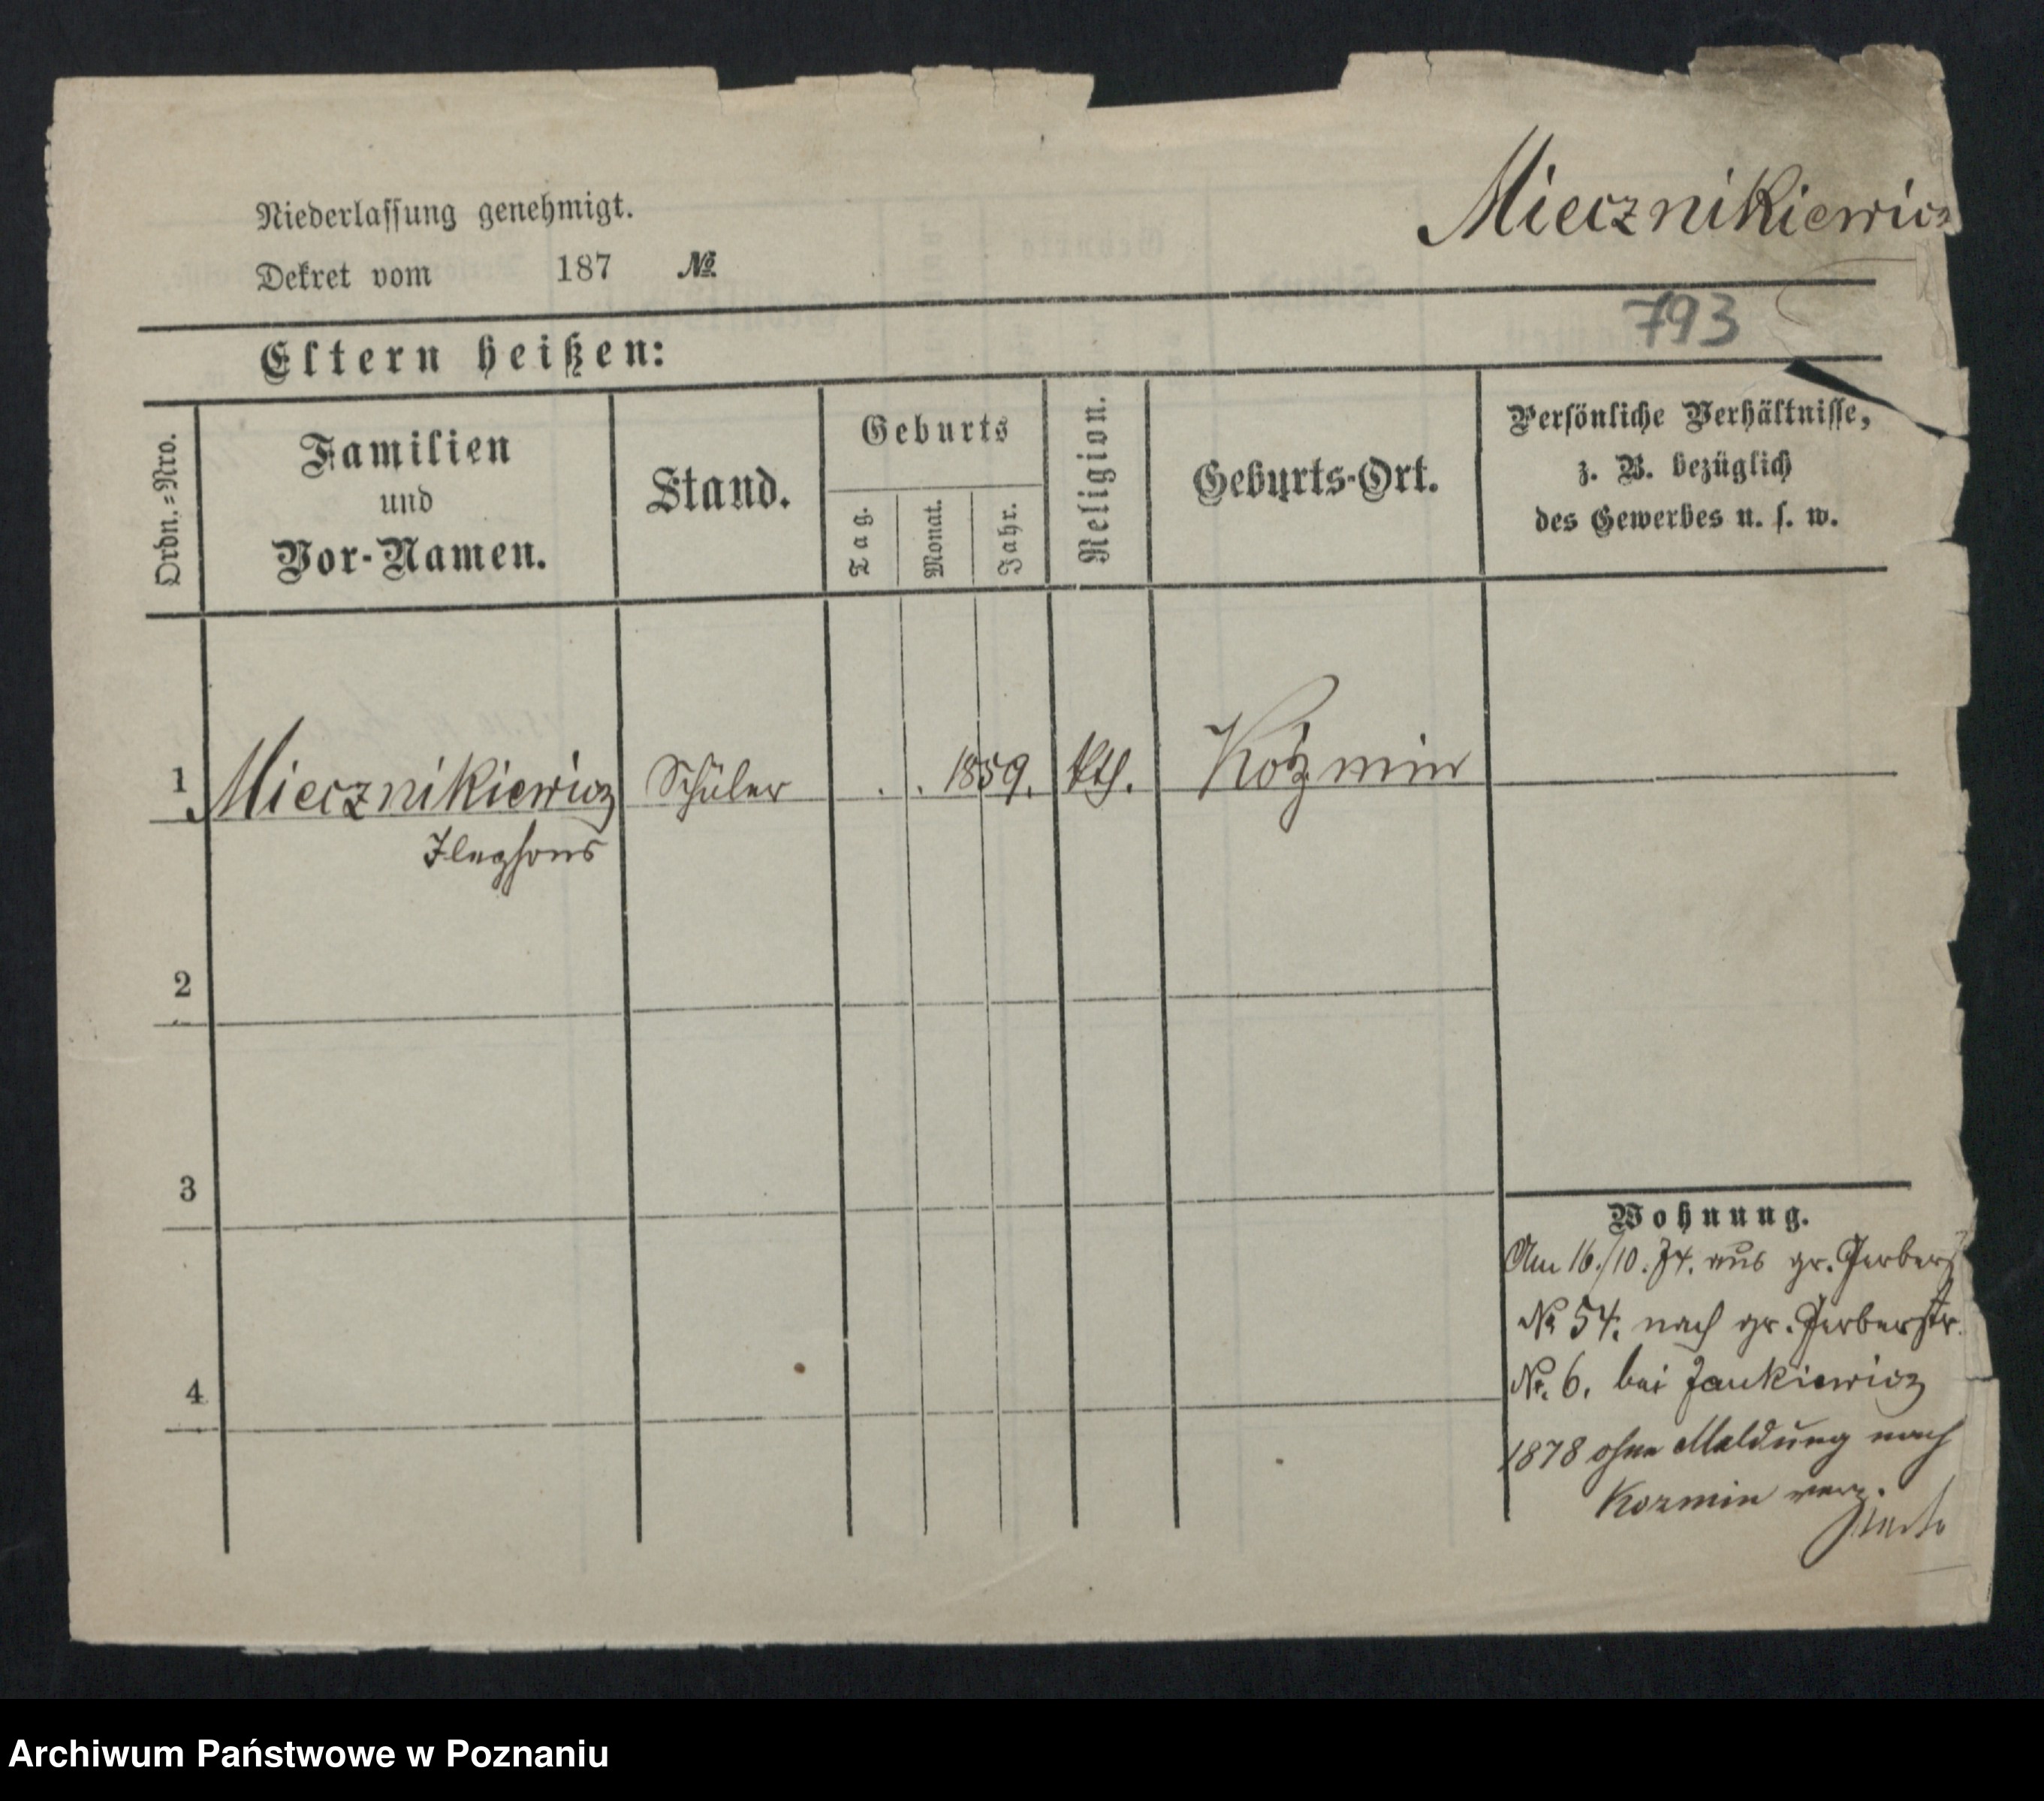 Miecznikiewicz
Niederlassung genehmigt.
Dekret vom 187 №
793
Eltern heißen:
Ordn.=Nro.
Familien
und
Vor-Namen.
Stand.
Geburts
Tag.
Monat.
Jahr.
Religion.
Geburts-Ort.
Persönliche Verhältnisse,
z. B. bezüglich
des Gewerbes u. s. w.
1 Miecznikiewicz Schüler . . 1859. kth. Kozmin
2
3
4
Wohnung.
Am 16./10. 74. aus gr. Gerberst
№ 54. nach gr. Gerberstr.
Nr. 6. bei Jankiewicz
1878 ohne Meldung nach
Kozmin verz.
Archiwum Państwowe w Poznaniu